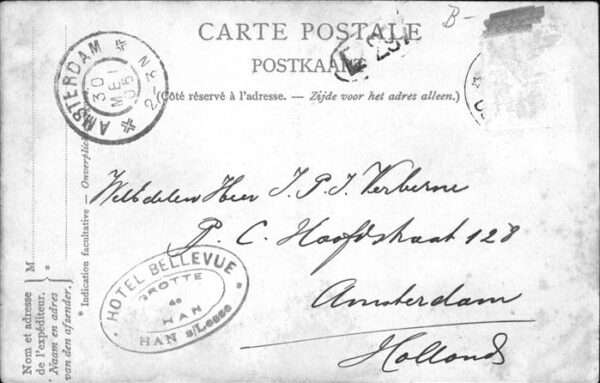 CARTE POSTALE
POSTKAART
(Côté réservé à l'adresse. — Zijde voor het adres alleen.)
AMSTERDAM
30 MEI 05
2-3 N
B-
WelEdelen Heer J. P. J. Verberne
P. C. Hoofdstraat 128
Amsterdam
Holland
HOTEL BELLEVUE
GROTTE
de
HAN
HAN s/Lesse
Nom et adresse
de l'expéditeur.
Naam en adres
van den afzender.
M
*
* Indication facultative — Onverplic